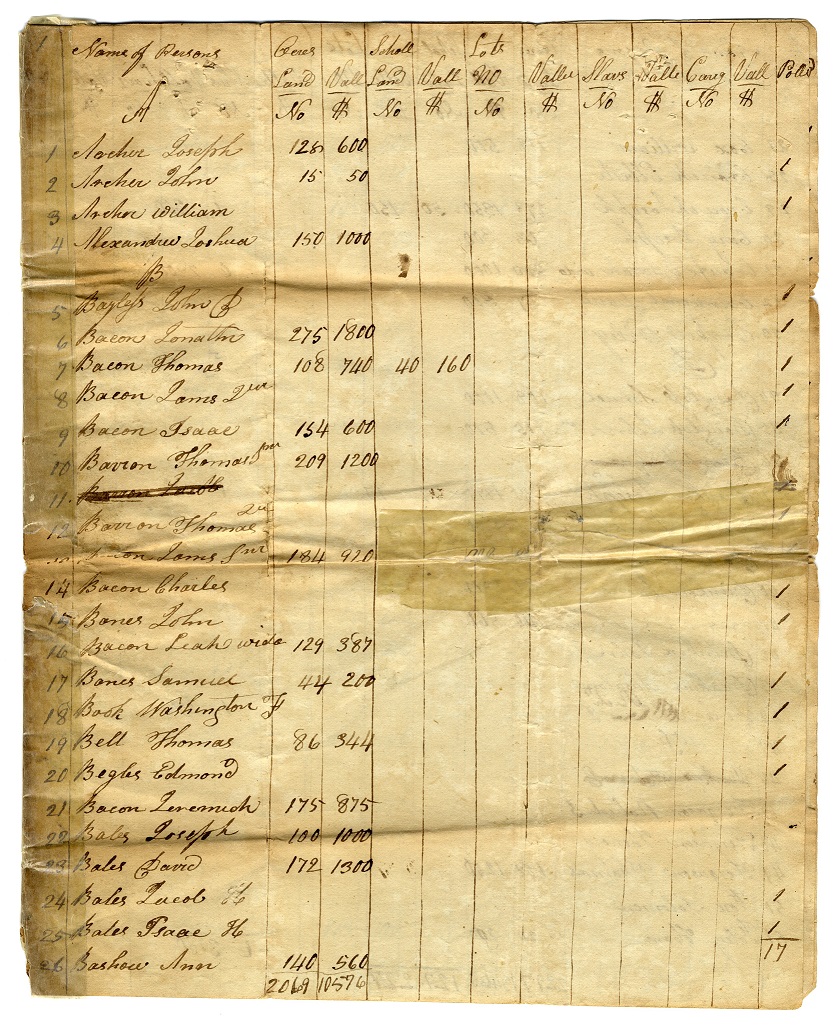 1 Name of Persons Acres Scholl Lots
Land Vall Land Vall No Vallu Slavs Valle Careg Vall Polld
A No $ No $ No $ No $ No $
1 Archer Joseph 128 600
2 Archer John 15 50 1
3 Archer William 1
4 Alexandrew Joshua 150 1000
B
5 Bayless John D 1
6 Bacon Jonathn 275 1800 1
7 Bacon Thomas 108 740 40 160 1
8 Bacon Jams Jur 1
9 Bacon Isaac 154 600 1
10 Barron Thomas Snr 209 1200
11 Barron Jacob
12 Barron Thomas Jur 1
Jams Snr 184 920
14 Bacon Charles 1
15 Banes John 1
16 Bacon Leah wido 129 387
17 Banes Samuel 44 200 1
18 Book Washington F 1
19 Bell Thomas 86 344 1
20 Begles Edmond 1
21 Bacon Jeremiah 175 875
22 Bales Joseph 100 1000
23 Bales David 172 1300
24 Bales Jacob H 1
25 Bales Isaac H 1
17
26 Bashow Ann 140 560
2069 10576